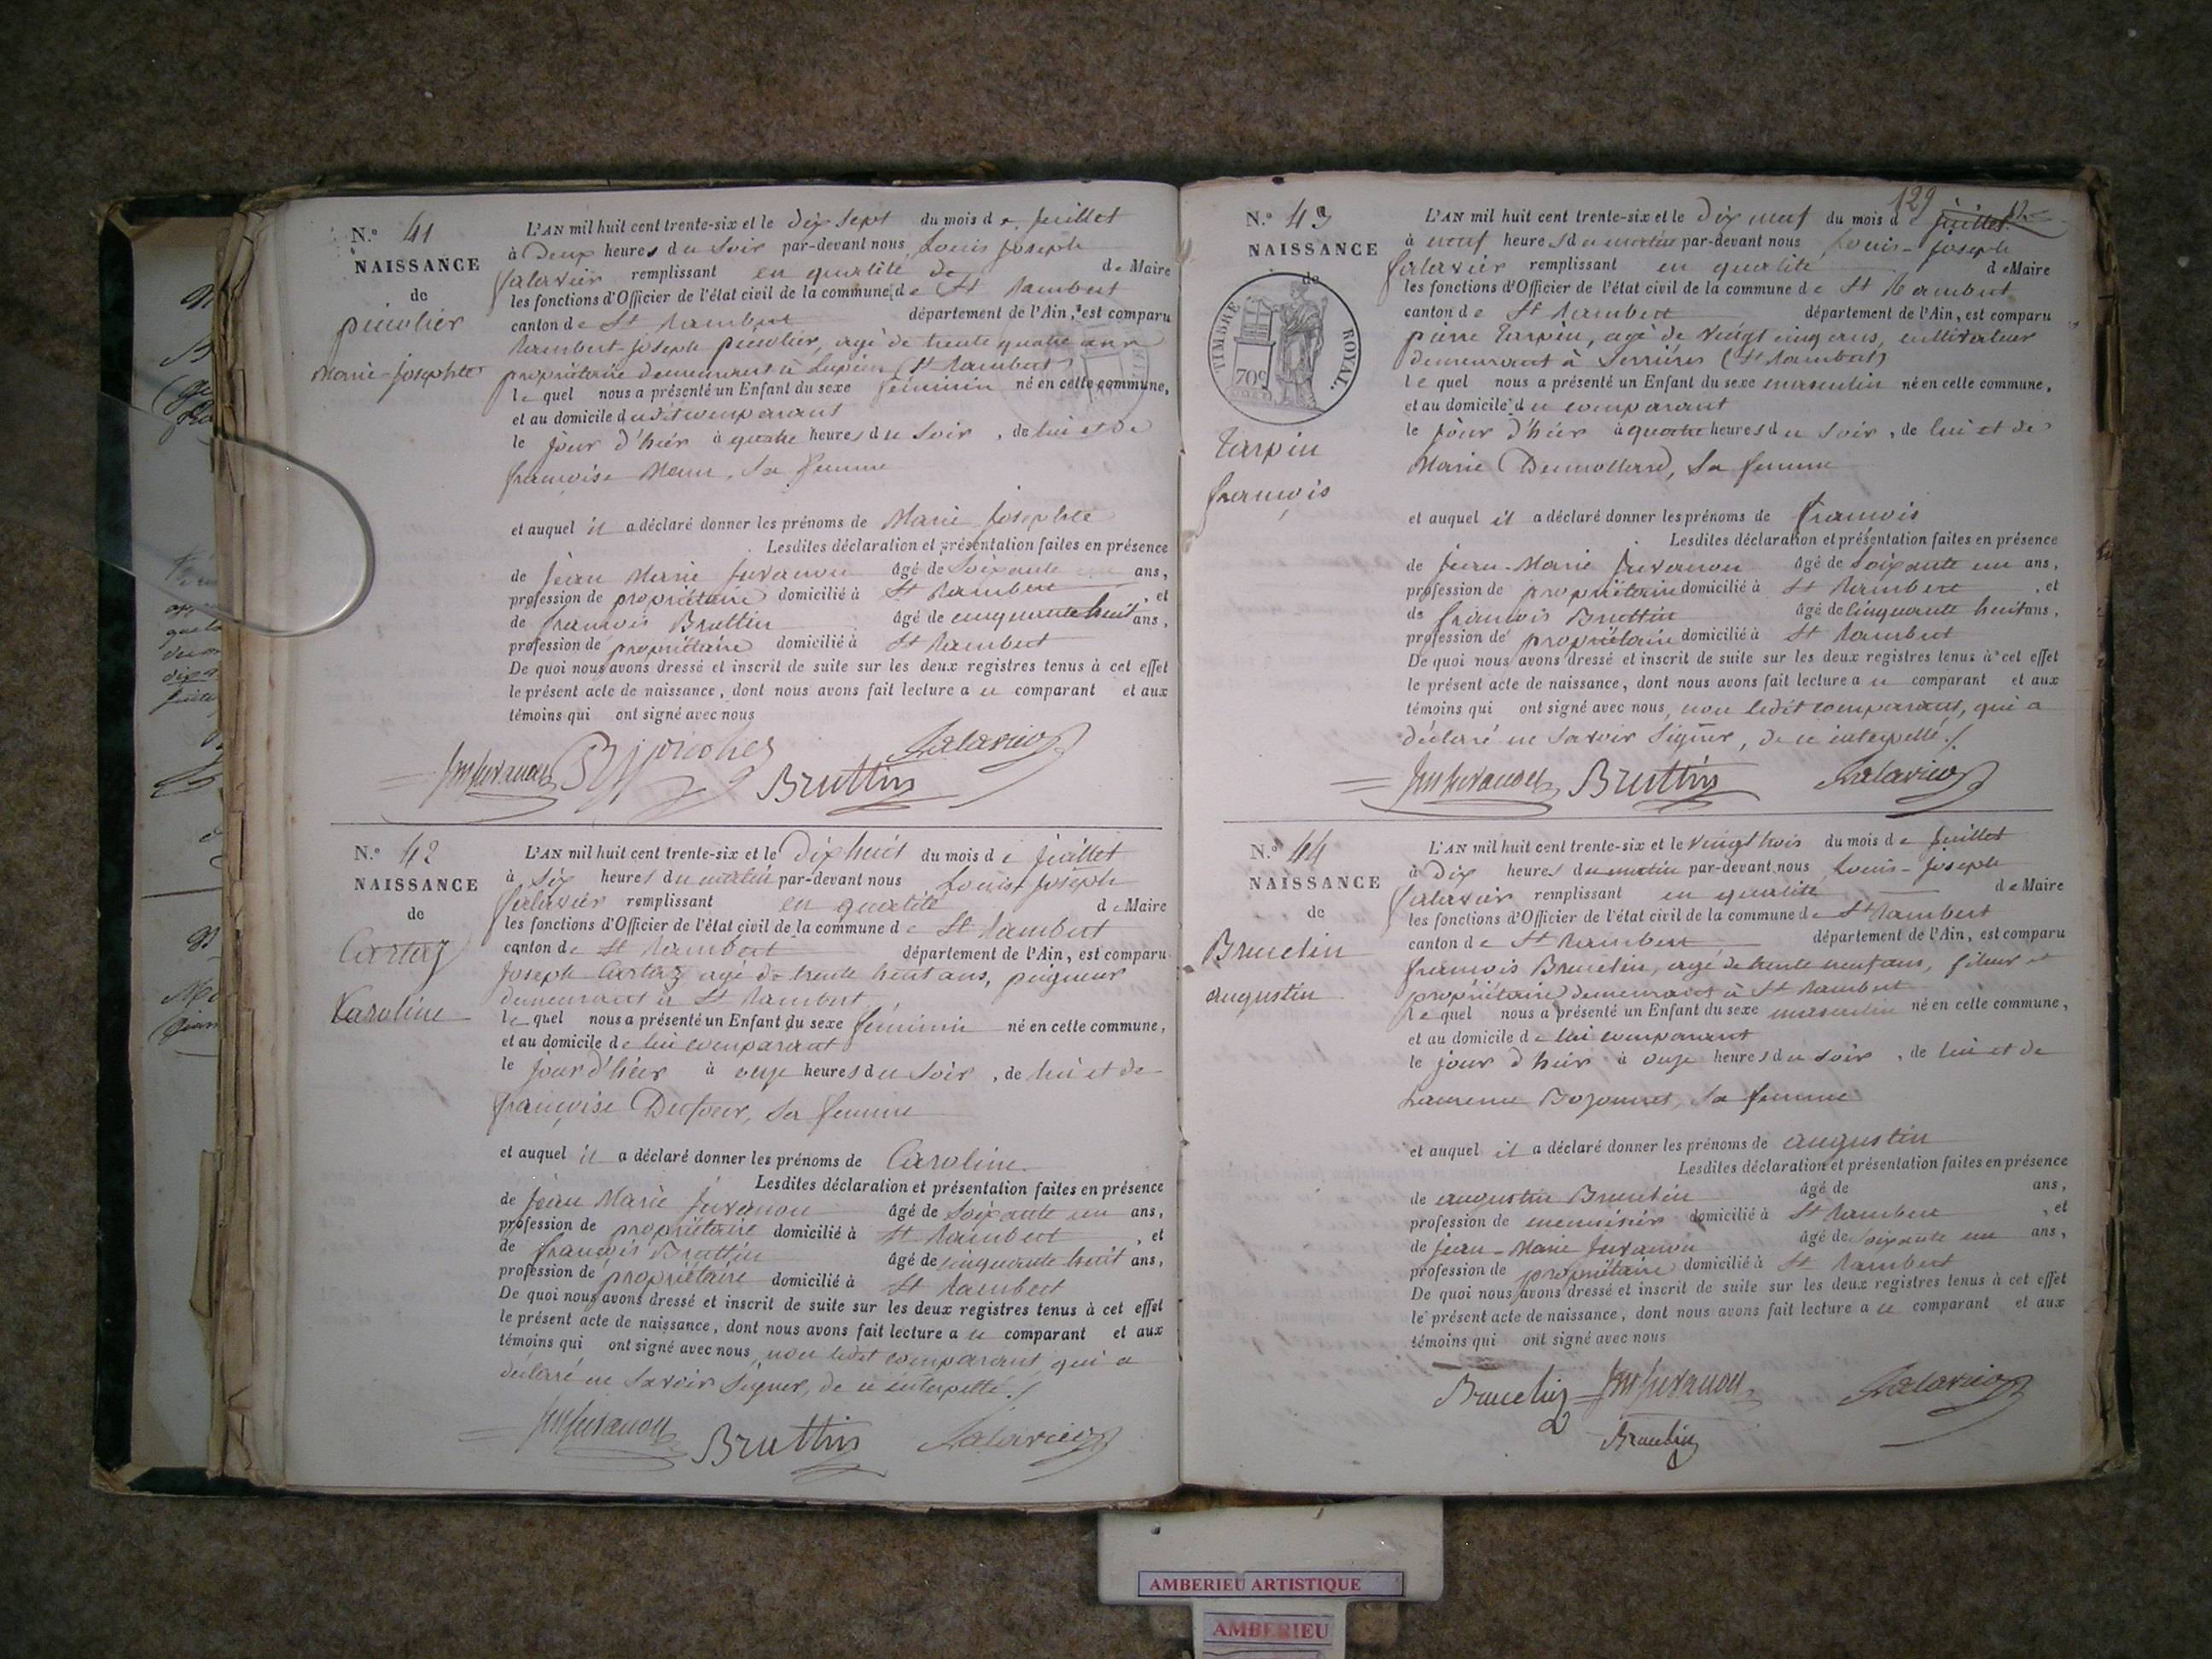 N.° 41
NAISSANCE
de
picolier
Marie-Josephte
L'AN mil huit cent trente-six et le Dix sept du mois de Juillet
à Deux heures du Soir par-devant nous Louis Joseph
Salavier remplissant en qualité de de Maire
les fonctions d'Officier de l'état civil de la commune de St Rambert
canton de St Rambert département de l'Ain, est comparu
Rambert-Joseph picolier, agé de trente quatre ans
propriétaire demeurant à Lupieu (St Rambert)
lequel nous a présenté un Enfant du sexe féminin né en cette commune,
et au domicile dudit comparant
le jour d'hier à quatre heures du Soir, de lui et de
françoise sa femme
et auquel il a déclaré donner les prénoms de Marie Josephte
Lesdites déclaration et présentation faites en présence
de Jean Marie Juvanon âgé de Soixante un ans,
profession de propriétaire domicilié à St Rambert, et
de françois Bruttin âgé de cinquante huit ans,
profession de propriétaire domicilié à St Rambert
De quoi nous avons dressé et inscrit de suite sur les deux registres tenus à cet effet
le présent acte de naissance, dont nous avons fait lecture a ce comparant et aux
témoins qui ont signé avec nous
JM Juvanon picolier Bruttin Salavier
N.° 42
NAISSANCE
de
Cartaz
Caroline
L'AN mil huit cent trente-six et le Dix huit du mois de Juillet
à Six heures du matin par-devant nous Louis Joseph
Salavier remplissant en qualité de Maire
les fonctions d'Officier de l'état civil de la commune de St Rambert
canton de St Rambert département de l'Ain, est comparu
Joseph Cartaz agé de trente huit ans, peigneur
demeurant à St Rambert
lequel nous a présenté un Enfant du sexe féminin né en cette commune,
et au domicile de lui comparant
le jour d'hier à onze heures du Soir, de lui et de
françoise Dufour, sa femme
et auquel il a déclaré donner les prénoms de Caroline
Lesdites déclaration et présentation faites en présence
de Jean Marie Juvanon âgé de Soixante un ans,
profession de propriétaire domicilié à St Rambert, et
de françois Bruttin âgé de cinquante huit ans,
profession de propriétaire domicilié à St Rambert
De quoi nous avons dressé et inscrit de suite sur les deux registres tenus à cet effet
le présent acte de naissance, dont nous avons fait lecture a ce comparant et aux
témoins qui ont signé avec nous, non ledit comparant qui a
déclaré ne Savoir Signer, de ce interpellé ./
JM Juvanon Bruttin Salavier
129
N.° 43
NAISSANCE
de
TIMBRE ROYAL.
70c
Tarpin
françois
L'AN mil huit cent trente-six et le Dix neuf du mois de juillet
à neuf heures du matin par-devant nous Louis-Joseph
Salavier remplissant en qualité de Maire
les fonctions d'Officier de l'état civil de la commune de St Rambert
canton de St Rambert département de l'Ain, est comparu
pierre Tarpin, agé de vingt cinq ans, cultivateur
demeurant à Serrières (St Rambert)
lequel nous a présenté un Enfant du sexe masculin né en cette commune,
et au domicile du comparant
le jour d'hier à quatre heures du Soir, de lui et de
Marie Dumollard, Sa femme
et auquel il a déclaré donner les prénoms de françois
Lesdites déclaration et présentation faites en présence
de Jean-Marie Juvanon âgé de Soixante un ans,
profession de propriétaire domicilié à St Rambert, et
de françois Bruttin âgé de cinquante huit ans,
profession de propriétaire domicilié à St Rambert
De quoi nous avons dressé et inscrit de suite sur les deux registres tenus à cet effet
le présent acte de naissance, dont nous avons fait lecture a ce comparant et aux
témoins qui ont signé avec nous, non ledit comparant, qui a
déclaré ne Savoir Signer, de ce interpellé ./
JM Juvanon Bruttin Salavier
N.° 44
NAISSANCE
de
Brucelin
augustin
L'AN mil huit cent trente-six et le vingt trois du mois de Juillet
à Dix heures du matin par-devant nous Louis-Joseph
Salavier remplissant en qualité de Maire
les fonctions d'Officier de l'état civil de la commune de St Rambert
canton de St Rambert département de l'Ain, est comparu
françois Brucelin, agé de trente neuf ans, fileur et
propriétaire demeurant à St Rambert
lequel nous a présenté un Enfant du sexe masculin né en cette commune,
et au domicile de lui comparant
le jour d'hier à onze heures du soir, de lui et de
Laurence Bozonnet, Sa femme
et auquel il a déclaré donner les prénoms de augustin
Lesdites déclaration et présentation faites en présence
de augustin Brucelin âgé de ans,
profession de menuisier domicilié à St Rambert, et
de Jean-Marie Juvanon âgé de Soixante un ans,
profession de propriétaire domicilié à St Rambert
De quoi nous avons dressé et inscrit de suite sur les deux registres tenus à cet effet
le présent acte de naissance, dont nous avons fait lecture a ce comparant et aux
témoins qui ont signé avec nous
Brucelin JM Juvanon Salavier
Brucelin
AMBERIEU ARTISTIQUE
AMBERIEU